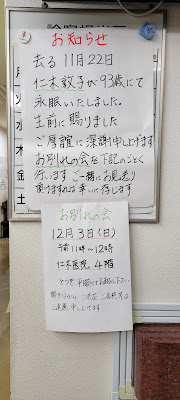 お知らせ
去る11月22日
仁木敦子が93歳にて
永眠いたしました。
生前に賜りました
ご厚誼に深謝申し上げます
お別れの会を下記のごとく
行います ご一緒にお見送り
頂けますれば幸いに存じます
月
火
水
木
金
土
お別れの会
12月3日(日)
午前11時〜12時
仁木医院 4階
平服にてお越し下さい